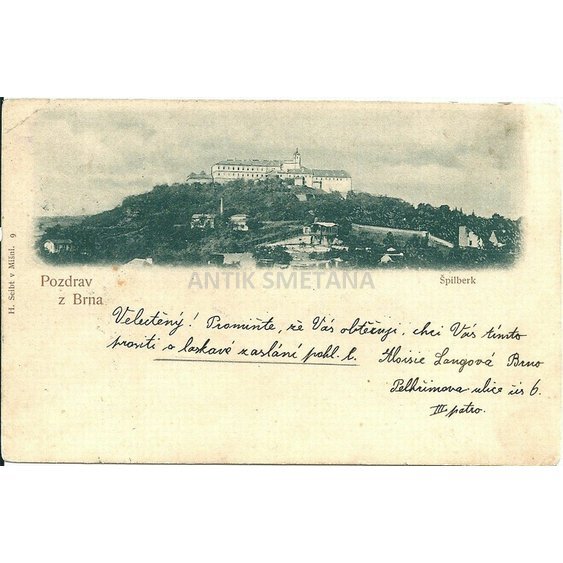 ANTIK SMETANA
Pozdrav
z Brna
Špilberk
H. Seibt v Míšni. 9
Velectěný! Promiňte, že Vás obtěžuji, chci Vás tímto
prositi o laskavé zaslání pohl. l. Aloisie Langová Brno
Pelhřimova ulice čís 6.
III. patro.